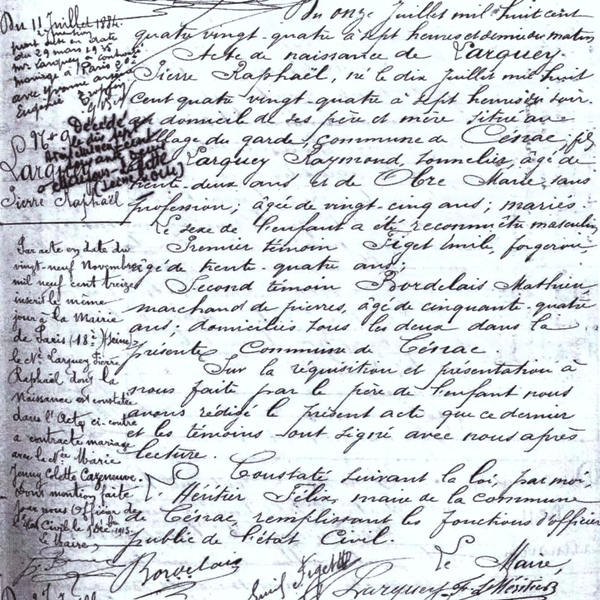 Du 11 Juillet 1884.
pent
du 29 mars 1936
mr Larquey a contracté
mariage à Paris
avec Yvonne
Eugénie
Nº 9
Larquey
Pierre Raphaël
Décédé
le dix sept
mil neuf cent
Par acte en date du
vingt-neuf Novembre
mil neuf cent treize
inscrit le même
jour à la Mairie
de Paris (18e) (Seine)
le Né Larquey Pierre
Raphaël dont la
Naissance est constatée
dans l'Acte ci-contre
a contracté mariage
avec la Née Marie
Jenny Colette Cazneuve.
dont mention faite
par nous Officier de
l'Etat Civil le 1 Déc. 1913
Le Maire,
Du onze Juillet mil huit cent
quatre vingt-quatre à sept heures et demie du matin
Acte de naissance de Larquey
Pierre Raphaël, né le dix juillet mil huit
cent quatre vingt-quatre à sept heures du soir
au domicile de ses père et mère situé au
village du garde, commune de Cénac; fils
de Larquey Raymond, tonnelier, âgé de
trente-deux ans et de Obre Marie, sans
profession; âgée de vingt-cinq ans; mariés.
Le sexe de l'enfant a été reconnu être masculin
Premier témoin Figet Emile, forgeron,
âgé de trente-quatre ans;
Second témoin Bordelais Mathieu
marchand de pierres, âgé de cinquante-quatre
ans; domiciliés tous les deux dans la
présente Commune de Cénac
Sur la réquisition et présentation à
nous faite par le père de l'enfant nous
avons rédigé le présent acte que ce dernier
et les témoins ont signé avec nous après
lecture.
Constaté suivant la loi, par moi,
L'Héritier Félix, maire de la commune
de Cénac, remplissant les fonctions d'officier
public de l'état Civil.
Le Maire,
Bordelais
Emile Figet
Larquey F. L'Héritier